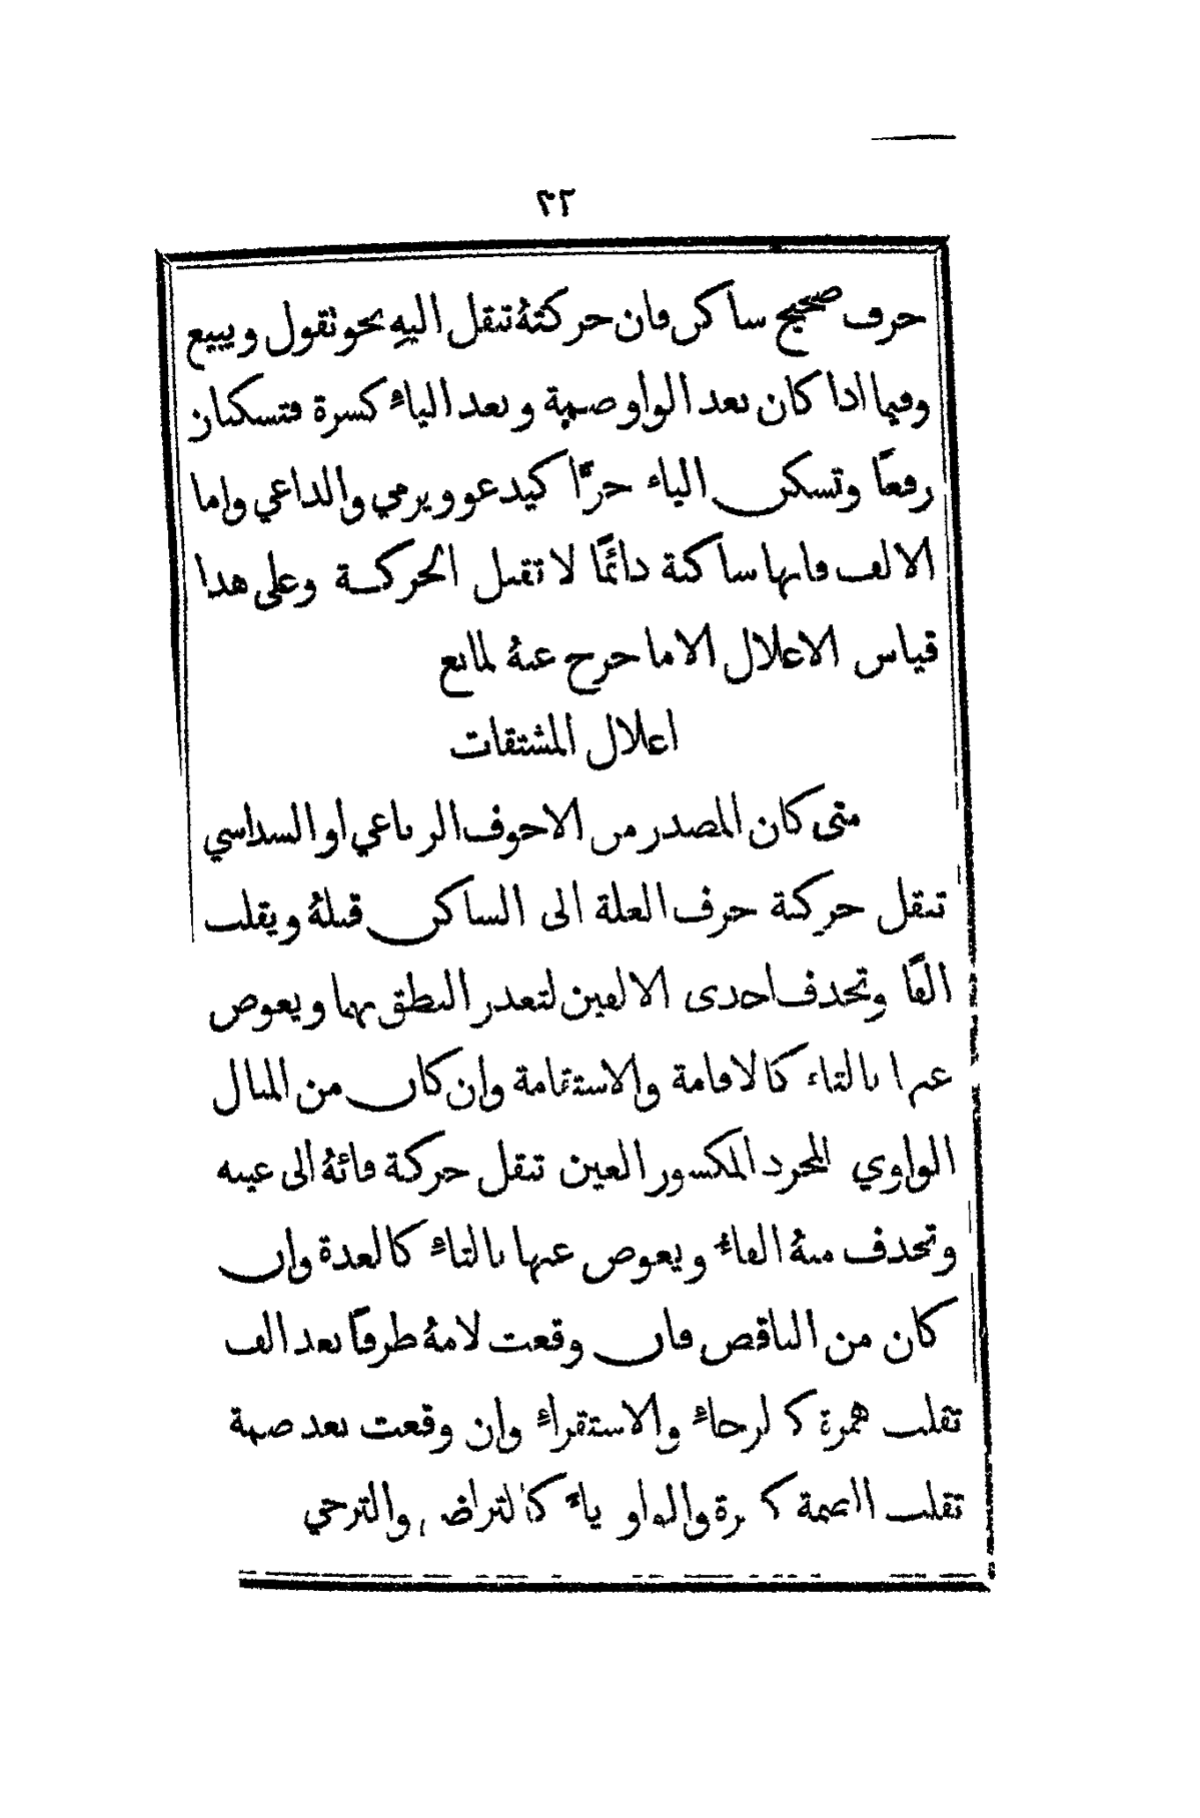 ٢٢
حرف صحيح ساكن فان حركتهُ تنقل اليهِ نحو تقول ويبيع
وفيما اذا كان بعد الواو ضمة وبعد الياءِ كسرة فتسكنان
رفعًا وتسكن الياء جرًّا كيدعو ويرمي والداعي واما
الالف فانها ساكنة دائمًا لا تقبل الحركة وعلى هذا
قياس الاعلال الا ما خرج عنهُ لمانع
اعلال المشتقات
متى كان المصدر من الاجوف الرباعي او السداسي
تنقل حركة حرف العلة الى الساكن قبلهُ ويقلب
الفًا وتحذف احدى الالفين لتعذر النطق بهما ويعوض
عنها بالتاء كالاقامة والاستقامة وان كان من المثال
الواوي المجرد المكسور العين تنقل حركة فائهُ الى عينه
وتحذف منهُ الفاءُ ويعوض عنها بالتاءِ كالعدة وان
كان من الناقص فان وقعت لامهُ طرفًا بعد الف
تقلب همزة كالرجاءِ والاستقراءِ وان وقعت بعد ضمة
تقلب الضمة كسرة والواو ياءً كالتراضي والترجي